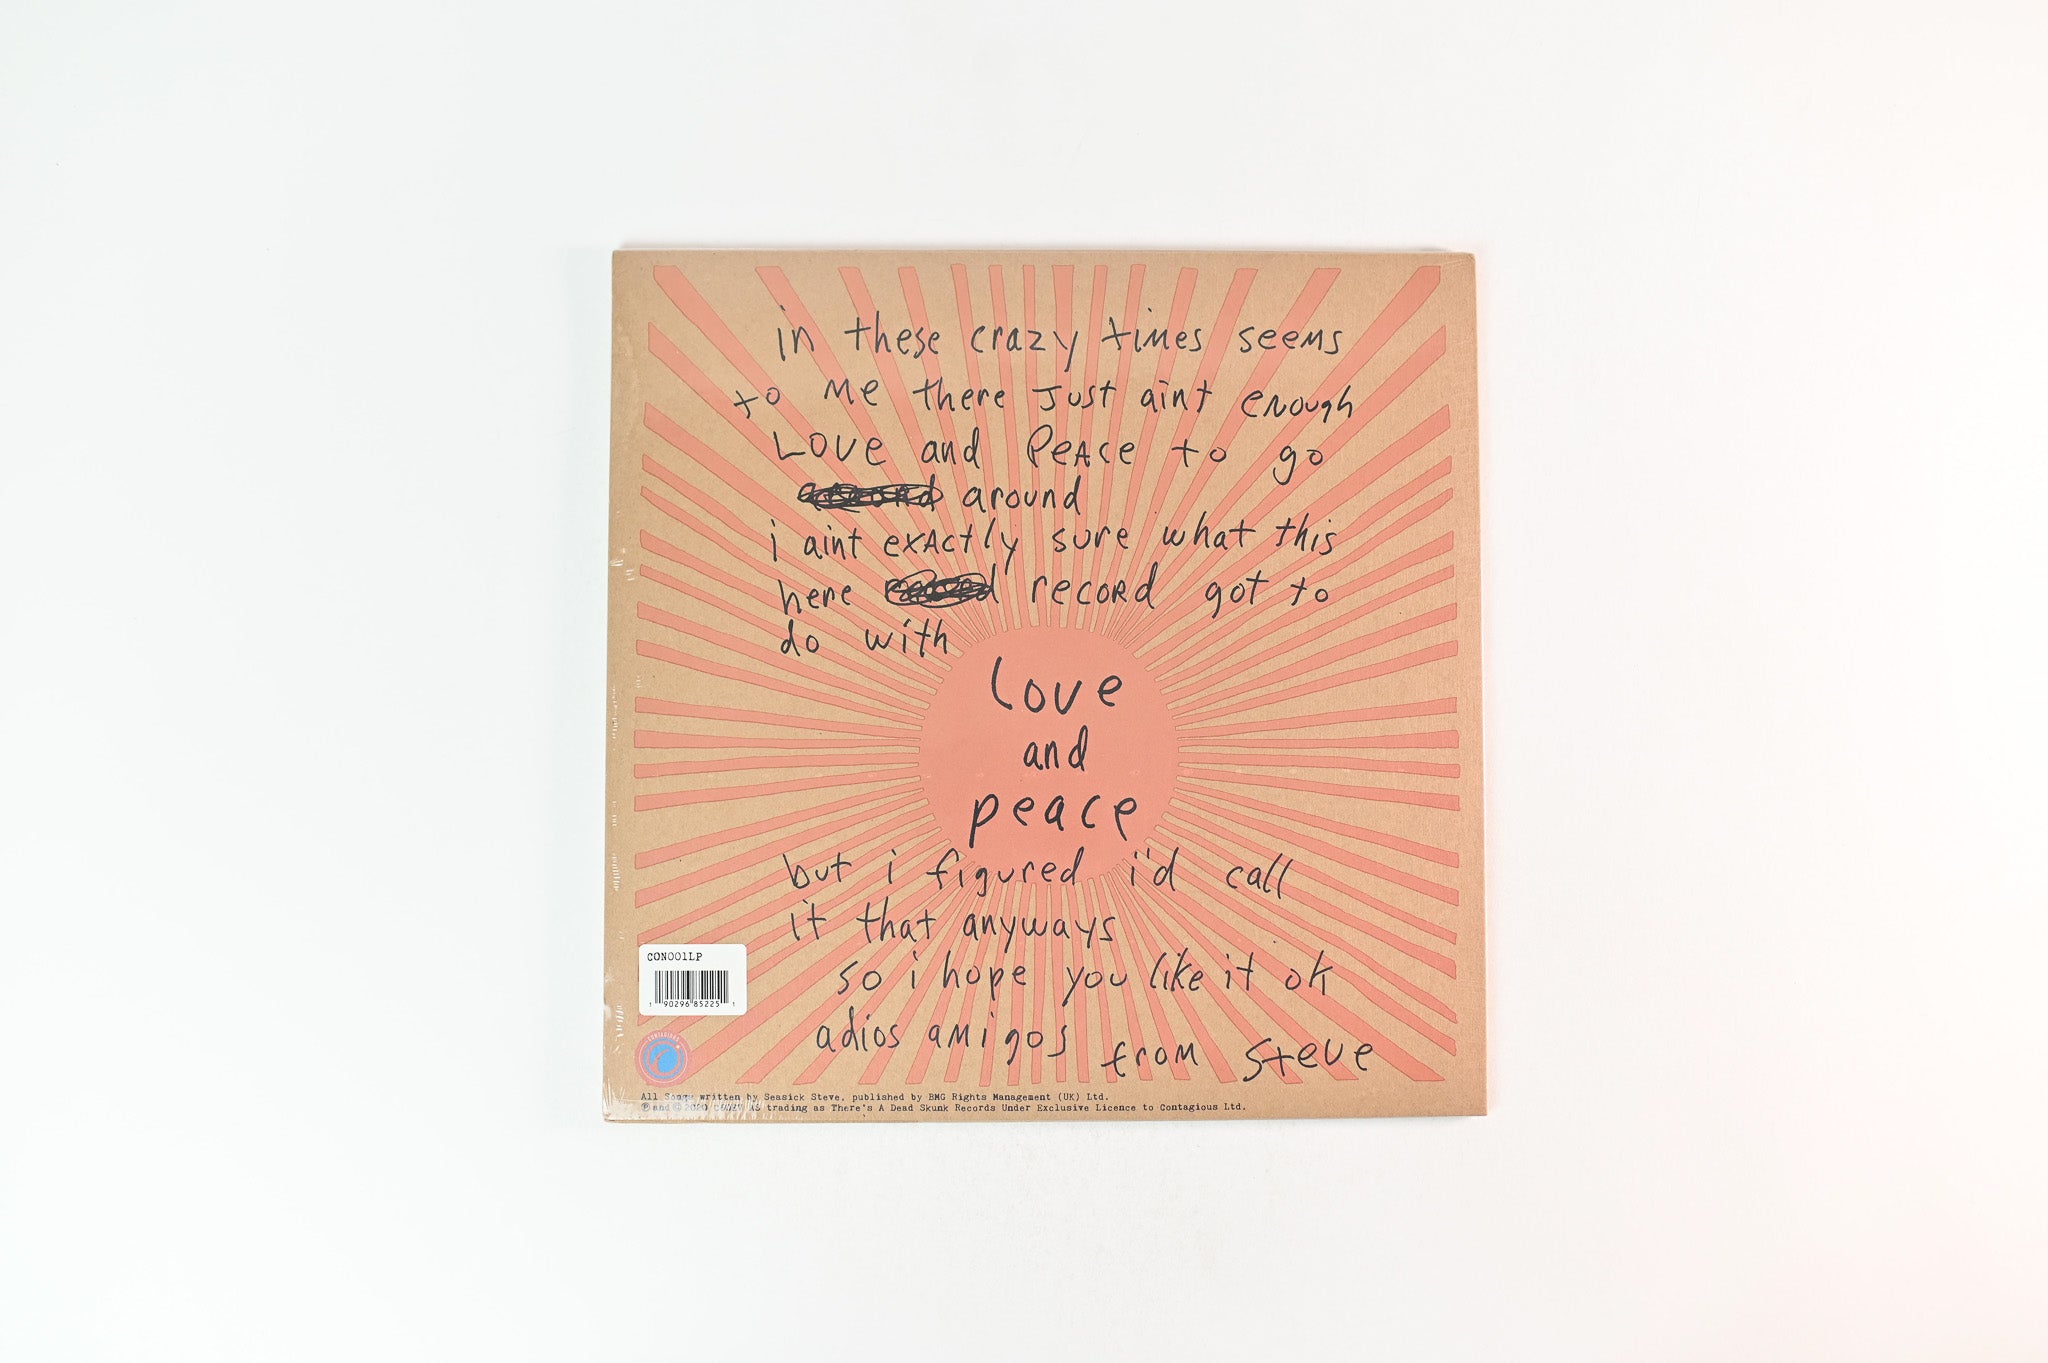 in these crazy times seems
to me there just aint enough
Love and Peace to go
around
i aint exactly sure what this
here record got to
do with
Love
and
peace
but i figured i'd call
it that anyways
so i hope you like it ok
adios amigos from Steve
CON001LP
1 90296 85225 1
CONTAGIOUS
All Songs written by Seasick Steve, published by BMG Rights Management (UK) Ltd.
℗ and © 2020 trading as There's A Dead Skunk Records Under Exclusive Licence to Contagious Ltd.